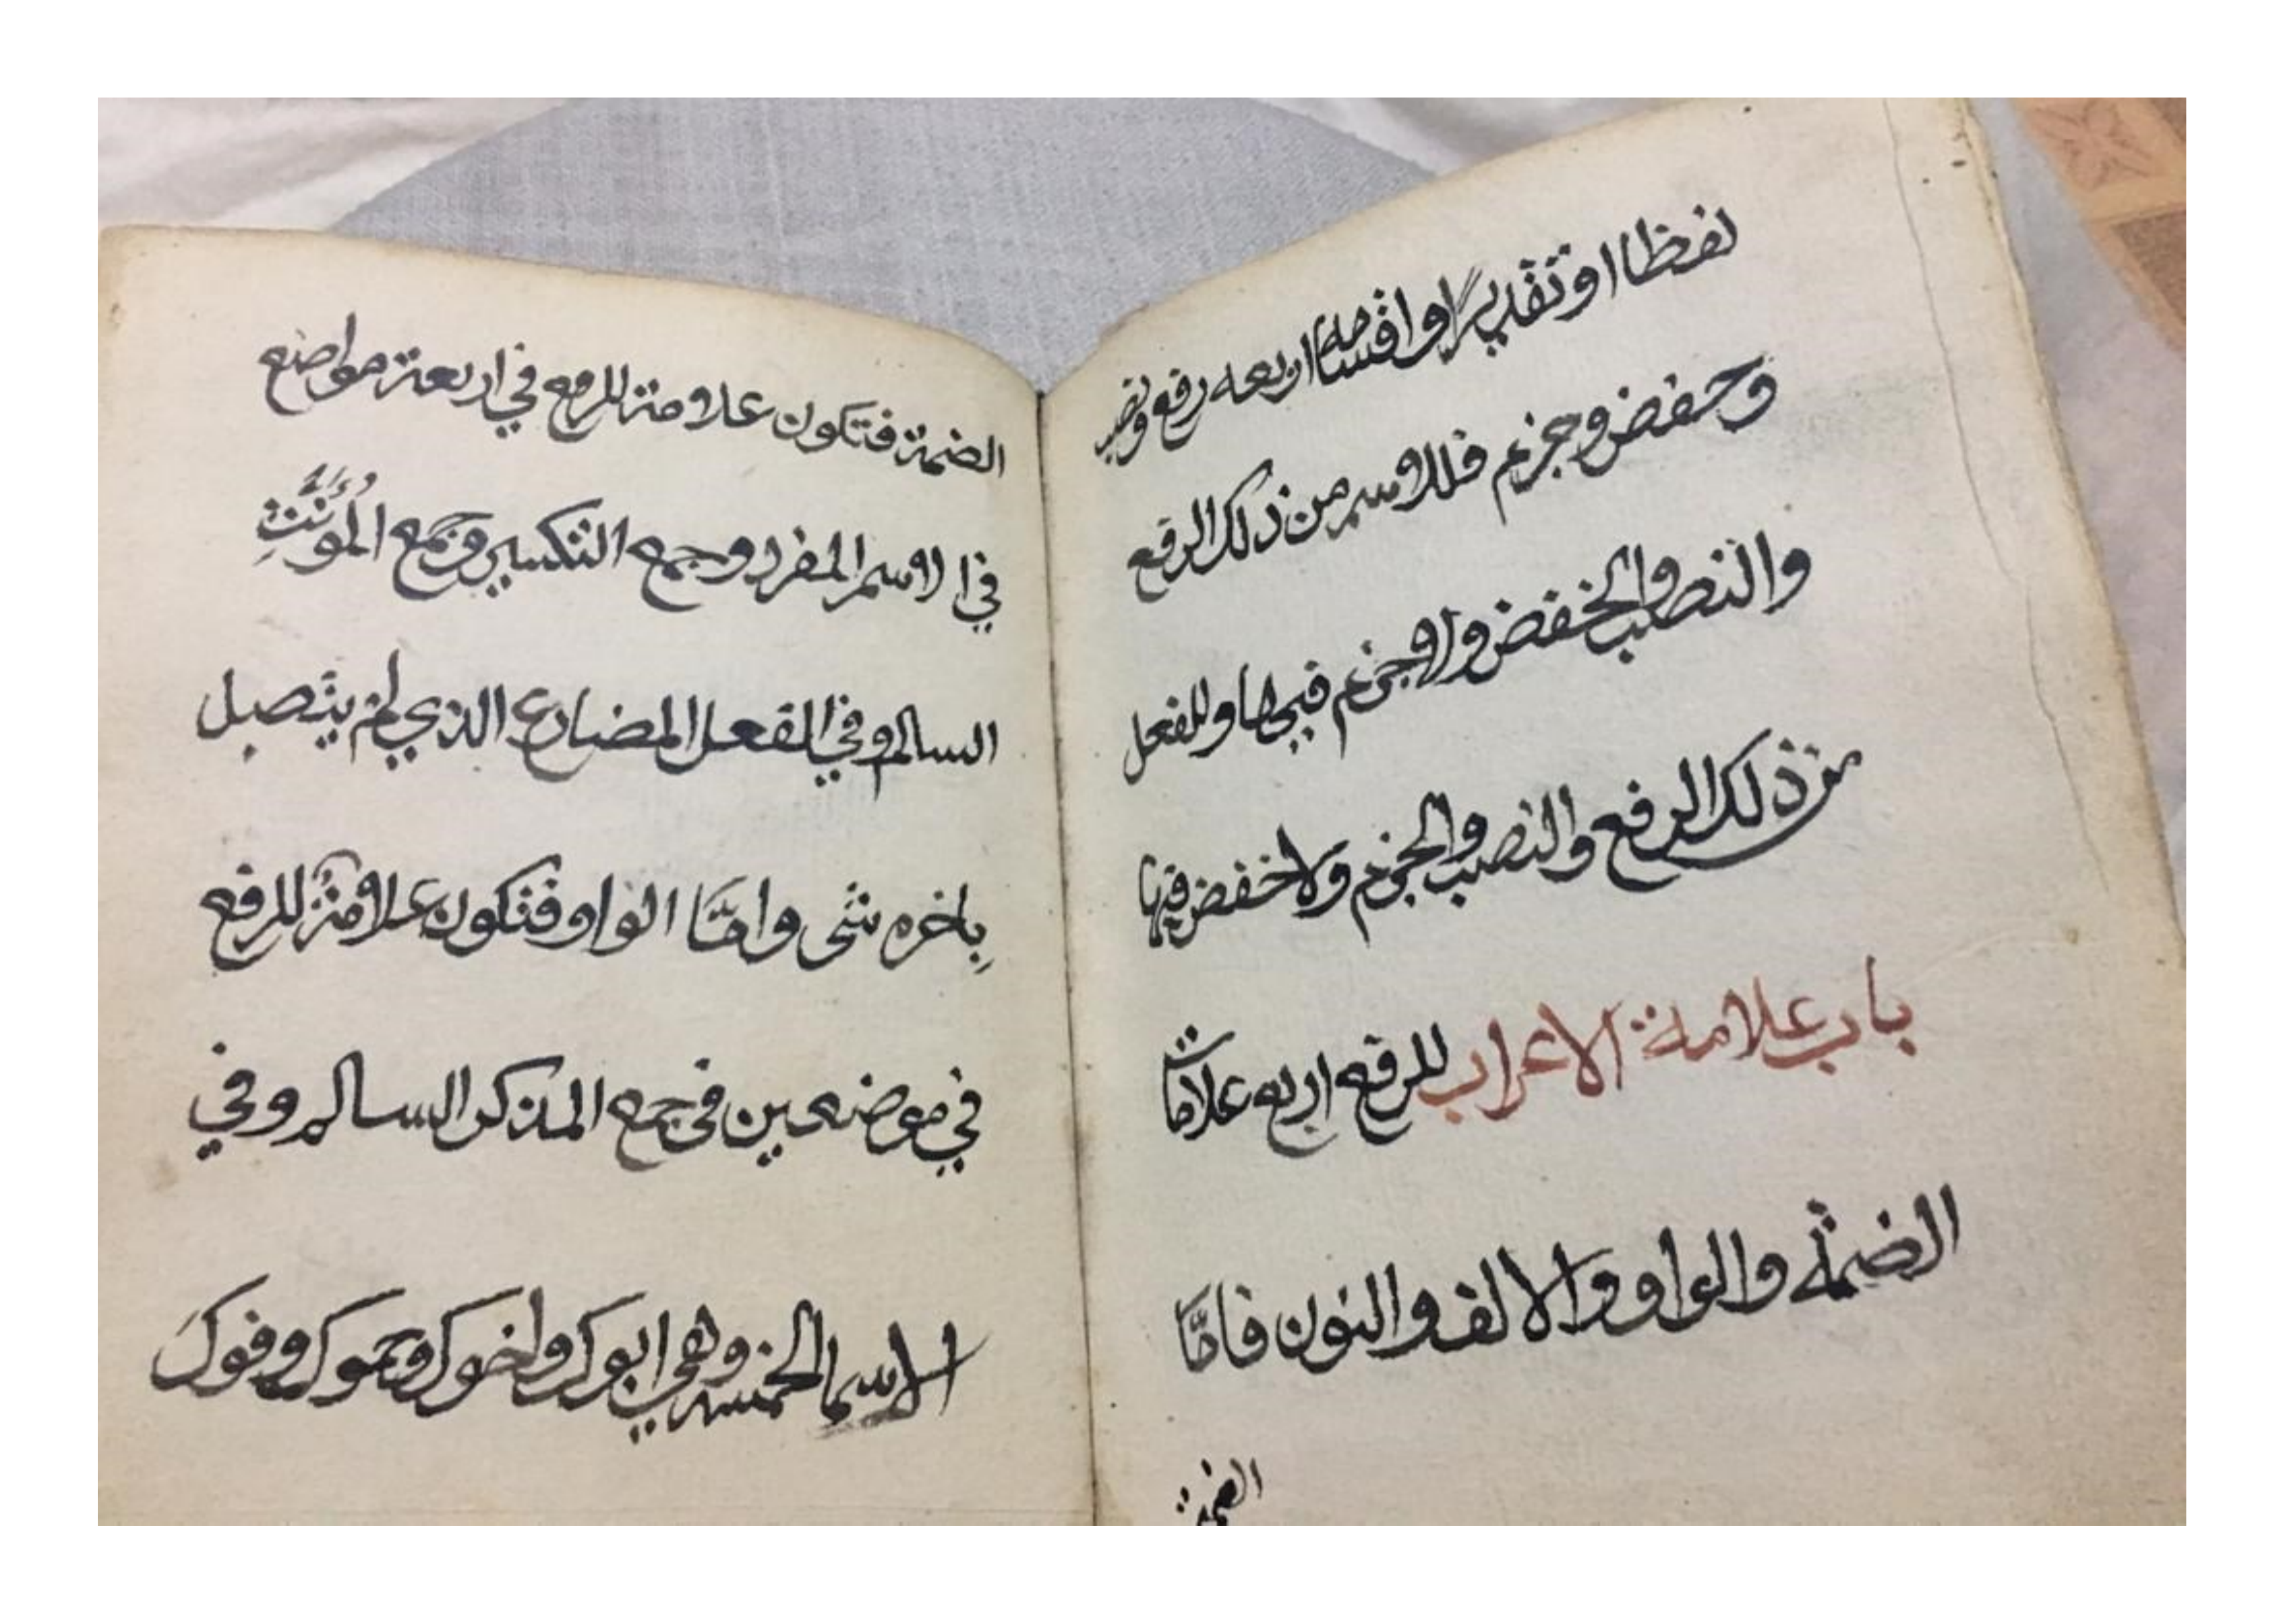 لفظا او تقديرًا واقسامه اربعه رفع ونصب
وخفض وجزم فللاسم من ذلك الرفع
والنصب والخفض ولاجزم فيها وللفعل
من ذلك الرفع والنصب والجزم ولا خفض فيها
باب علامة الاعراب للرفع اربع علامات
الضمة والواو والالف والنون فامّا
الضمة
الضمة فتكون علامة للرفع في اربعة مواضع
في الاسم المفرد وجمع التكسير وجمع المُؤَنَّثِ
السالم وفي الفعل المضارع الذي لم يتّصل
بِاخره شى وامّا الواو فتكون علامة للرفع
في موضعين فى جمع المذكر السالم وفي
الاسما الخمسه وهي ابوك واخوك وحموك وفوك